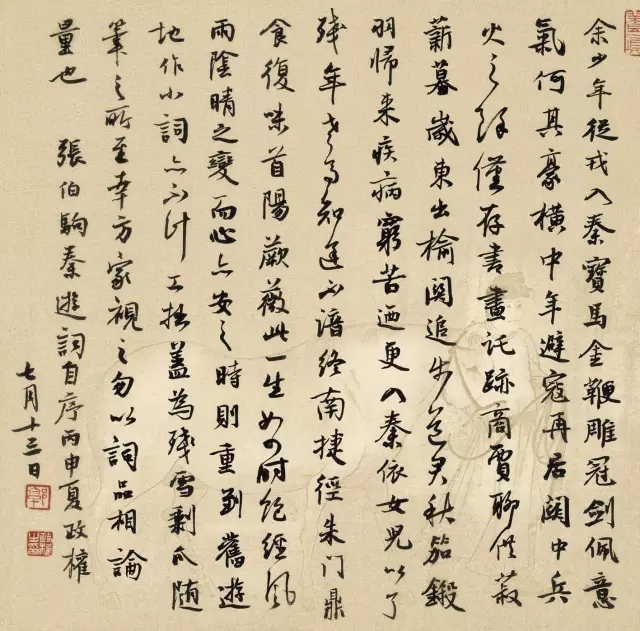 余少年從戎入秦寶馬金鞭雕冠劍佩意
氣何其豪橫中年避寇再居關中兵
火之餘僅存書畫託跡商賈聊供菽
薪暮歲東出榆關追步道君秋笳鍛
羽歸來疾病窮苦迺更入秦依女兒以了
殘年老馬知途不諳終南捷徑朱门鼎
食復味首陽蕨薇此一生如四時飽經風
雨陰晴之變而心亦安之時則重到舊遊
地作小詞亦不計工拙蓋為殘雪剩爪隨
筆之所至幸方家視之勿以詞品相論
量也 張伯駒秦遊詞自序丙申夏政權
七月十三日